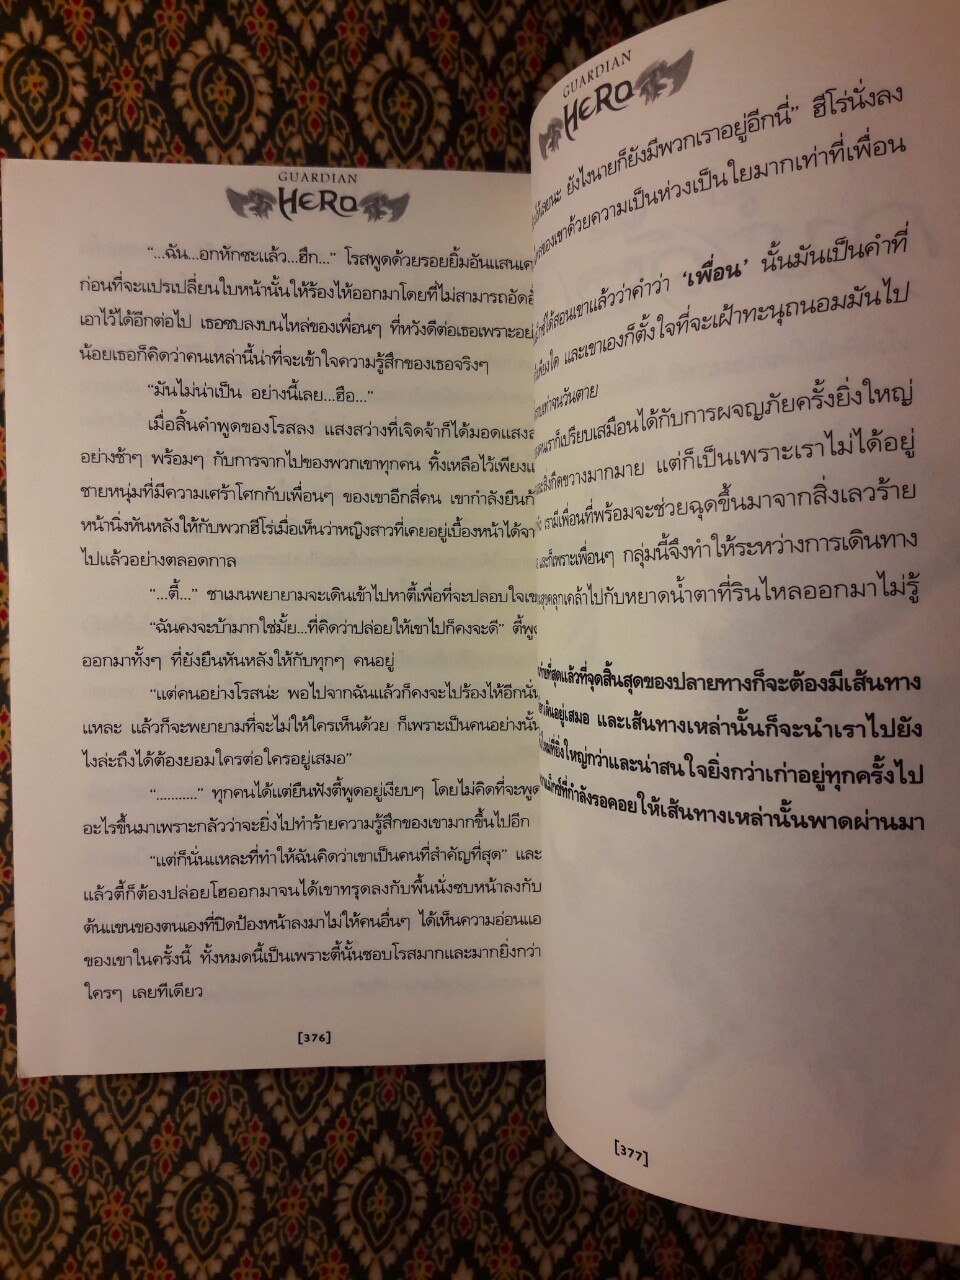 GUARDIAN
HERO
“...ฉัน...อกหักซะแล้ว...ฮึก...” โรสพูดด้วยรอยยิ้มอันแสน
ก่อนที่จะแปรเปลี่ยนใบหน้านั้นให้ร้องไห้ออกมาโดยที่ไม่สามารถ
เอาไว้ได้อีกต่อไป เธอซบลงบนไหล่ของเพื่อนๆ ที่หวังดีต่อเธอเพราะ
น้อยเธอก็คิดว่าคนเหล่านี้น่าที่จะเข้าใจความรู้สึกของเธอจริงๆ
“มันไม่น่าเป็น อย่างนี้เลย...ฮือ...”
เมื่อสิ้นคำพูดของโรสลง แสงสว่างที่เจิดจ้าก็ได้มอดแสง
อย่างช้าๆ พร้อมๆ กับการจากไปของพวกเขาทุกคน ทิ้งเหลือไว้เพียง
ชายหนุ่มที่มีความเศร้าโศกกับเพื่อนๆ ของเขาอีกสี่คน เขากำลังยืน
หน้านิ่งหันหลังให้กับพวกฮีโร่เมื่อเห็นว่าหญิงสาวที่เคยอยู่เบื้องหน้าได้
ไปแล้วอย่างตลอดกาล
“...ตี้...” ชาเมนพยายามจะเดินเข้าไปหาตี้เพื่อที่จะปลอบใจ
“ฉันคงจะบ้ามากใช่มั้ย...ที่คิดว่าปล่อยให้เขาไปก็คงจะดี” ตี้
ออกมาทั้งๆ ที่ยังยืนหันหลังให้กับทุกๆ คนอยู่
“แต่คนอย่างโรสน่ะ พอไปจากฉันแล้วก็คงจะไปร้องไห้อีกนั่น
แหละ แล้วก็จะพยายามที่จะไม่ให้ใครเห็นด้วย ก็เพราะเป็นคนอย่างนั้น
ไงล่ะถึงได้ต้องยอมใครต่อใครอยู่เสมอ”
“...........” ทุกคนได้แต่ยืนฟังตี้พูดอยู่เงียบๆ โดยไม่คิดที่จะพูด
อะไรขึ้นมาเพราะกลัวว่าจะยิ่งไปทำร้ายความรู้สึกของเขามากขึ้นไปอีก
“แต่ก็นั่นแหละที่ทำให้ฉันคิดว่าเขาเป็นคนที่สำคัญที่สุด” และ
แล้วตี้ก็ต้องปล่อยโฮออกมาจนได้เขาทรุดลงกับพื้นนั่งซบหน้าลงกับ
ต้นแขนของตนเองที่ปิดป้องหน้าลงมาไม่ให้คนอื่นๆ ได้เห็นความอ่อนแอ
ของเขาในครั้งนี้ ทั้งหมดนี้เป็นเพราะตี้นั้นชอบโรสมากและมากยิ่งกว่า
ใครๆ เลยทีเดียว
[376]
GUARDIAN
HERO
ยังไงนายก็ยังมีพวกเราอยู่อีกนี่” ฮีโร่นั่งลง
ของเขาด้วยความเป็นห่วงเป็นใยมากเท่าที่เพื่อน
ได้สอนเขาแล้วว่าคำว่า ‘เพื่อน’ นั้นมันเป็นคำที่
และเขาเองก็ตั้งใจที่จะเฝ้าทะนุถนอมมันไป
จนวันตาย
เราก็เปรียบเสมือนได้กับการผจญภัยครั้งยิ่งใหญ่
สิ่งกีดขวางมากมาย แต่ก็เป็นเพราะเราไม่ได้อยู่
เรามีเพื่อนที่พร้อมจะช่วยฉุดขึ้นมาจากสิ่งเลวร้าย
และก็เพราะเพื่อนๆ กลุ่มนี้จึงทำให้ระหว่างการเดินทาง
คลุกเคล้าไปกับหยาดน้ำตาที่รินไหลออกมาไม่รู้
ที่สุดแล้วที่จุดสิ้นสุดของปลายทางก็จะต้องมีเส้นทาง
อยู่เสมอ และเส้นทางเหล่านั้นก็จะนำเราไปยัง
ที่ยิ่งใหญ่กว่าและน่าสนใจยิ่งกว่าเก่าอยู่ทุกครั้งไป
ที่กำลังรอคอยให้เส้นทางเหล่านั้นพาดผ่านมา
[377]